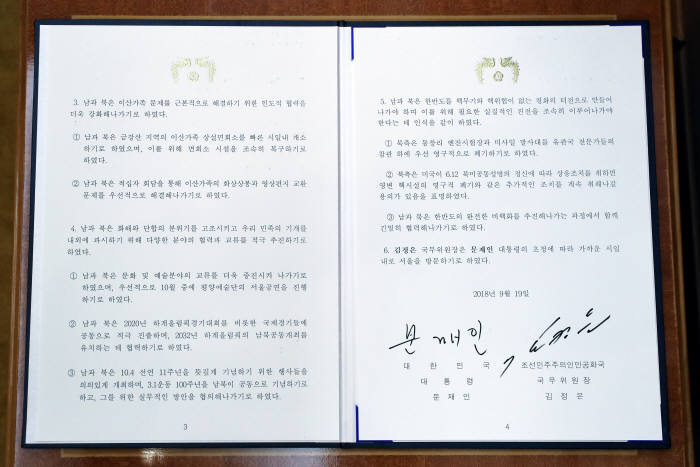 3. 남과 북은 이산가족 문제를 근본적으로 해결하기 위한 인도적 협력을
더욱 강화해나가기로 하였다.
① 남과 북은 금강산 지역의 이산가족 상설면회소를 빠른 시일내 개소
하기로 하였으며, 이를 위해 면회소 시설을 조속히 복구하기로
하였다.
② 남과 북은 적십자 회담을 통해 이산가족의 화상상봉과 영상편지 교환
문제를 우선적으로 해결해나가기로 하였다.
4. 남과 북은 화해와 단합의 분위기를 고조시키고 우리 민족의 기개를
내외에 과시하기 위해 다양한 분야의 협력과 교류를 적극 추진하기로
하였다.
① 남과 북은 문화 및 예술분야의 교류를 더욱 증진시켜 나가기로
하였으며, 우선적으로 10월 중에 평양예술단의 서울공연을 진행
하기로 하였다.
② 남과 북은 2020년 하계올림픽경기대회를 비롯한 국제경기들에
공동으로 적극 진출하며, 2032년 하계올림픽의 남북공동개최를
유치하는 데 협력하기로 하였다.
③ 남과 북은 10.4 선언 11주년을 뜻깊게 기념하기 위한 행사들을
의의있게 개최하며, 3.1운동 100주년을 남북이 공동으로 기념하기로
하고, 그를 위한 실무적인 방안을 협의해나가기로 하였다.
3
5. 남과 북은 한반도를 핵무기와 핵위협이 없는 평화의 터전으로 만들어
나가야 하며 이를 위해 필요한 실질적인 진전을 조속히 이루어나가야
한다는 데 인식을 같이 하였다.
① 북측은 동창리 엔진시험장과 미사일 발사대를 유관국 전문가들의
참관 하에 우선 영구적으로 폐기하기로 하였다.
② 북측은 미국이 6.12 북미공동성명의 정신에 따라 상응조치를 취하면
영변 핵시설의 영구적 폐기와 같은 추가적인 조치를 계속 취해나갈
용의가 있음을 표명하였다.
③ 남과 북은 한반도의 완전한 비핵화를 추진해나가는 과정에서 함께
긴밀히 협력해나가기로 하였다.
6. 김정은 국무위원장은 문재인 대통령의 초청에 따라 가까운 시일
내로 서울을 방문하기로 하였다.
2018년 9월 19일
문재인
대한민국
대통령
문재인
조선민주주의인민공화국
국무위원장
김정은
4